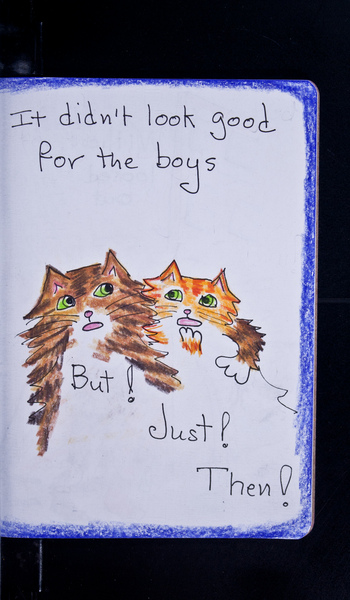 It didn't look good
for the boys
But!
Just!
Then!